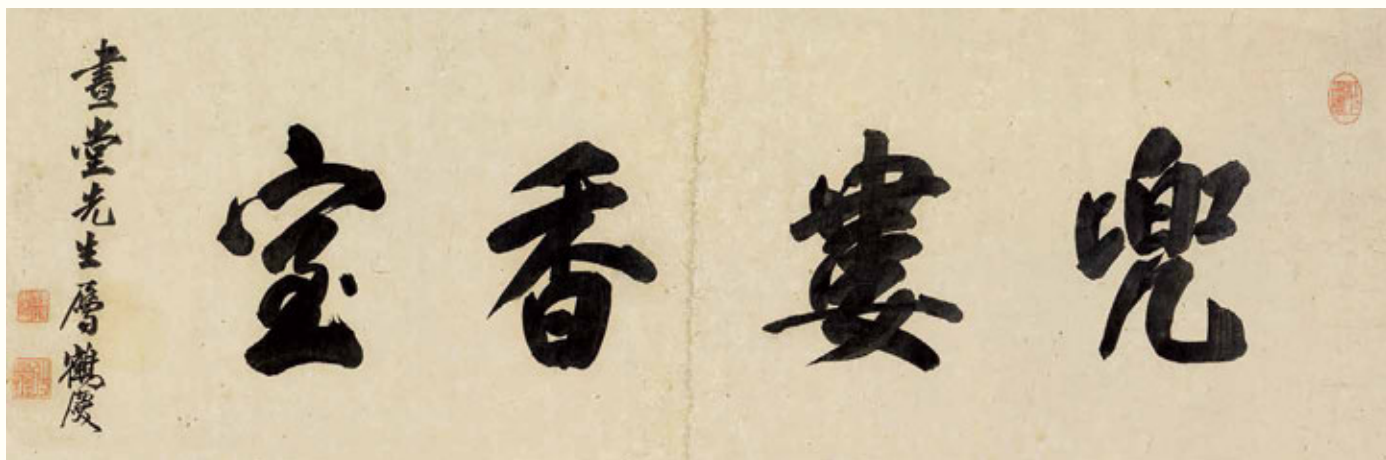 兜婁香室
晝堂先生屬 鶴慶